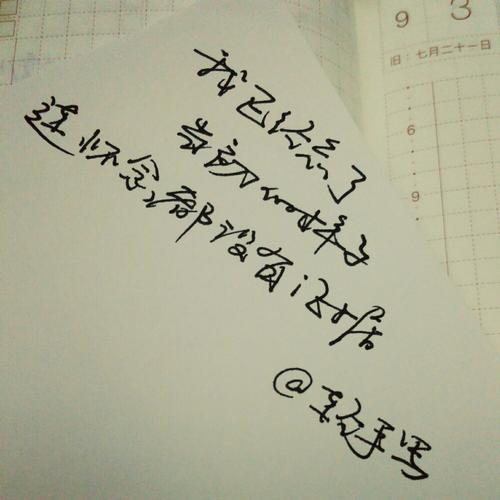 我已经忘了
当初的样子
连怀念都没有证据
@ 手写
9 3
旧：七月二十一日
6
9